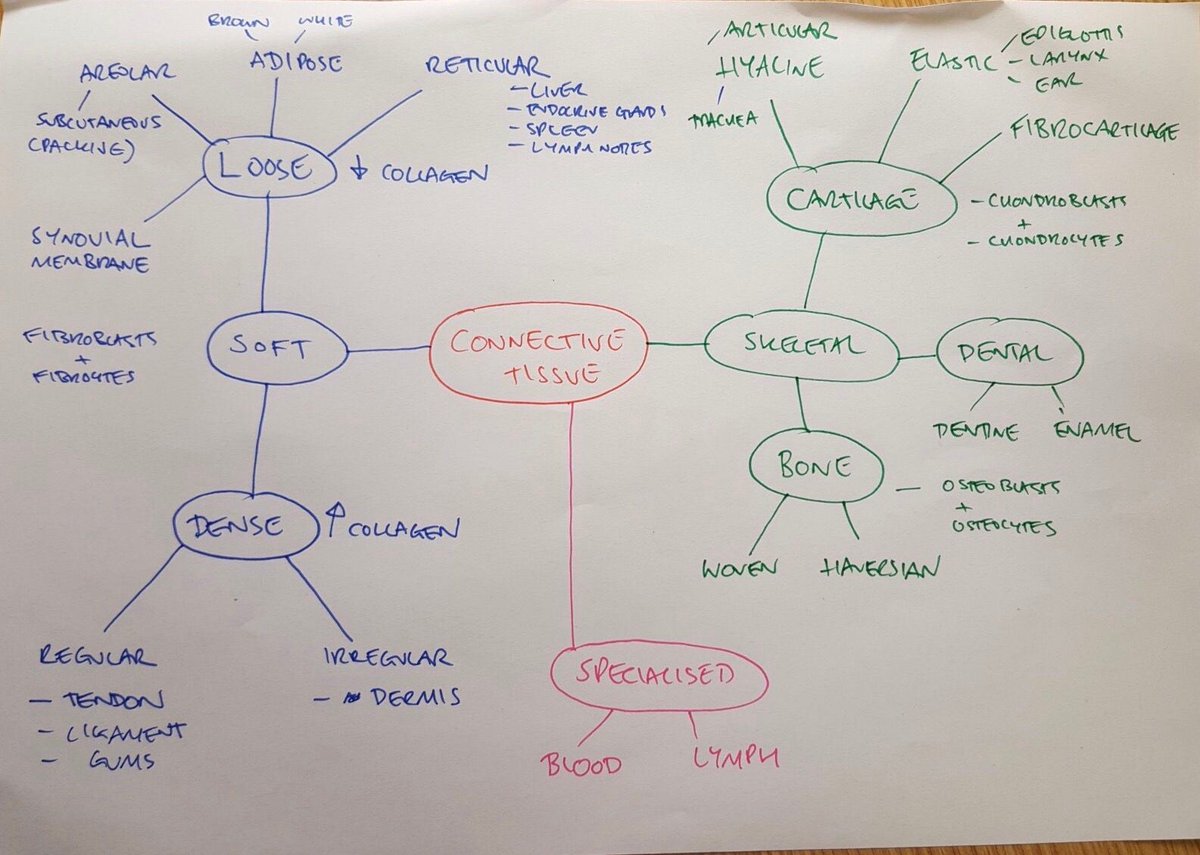 BROWN WHITE
ADIPOSE
AREOLAR
SUBCUTANEOUS
(PACKING)
RETICULAR
- LIVER
- ENDOCRINE GLANDS
- SPLEEN
- LYMPH NODES
LOOSE
↓ COLLAGEN
SYNOVIAL
MEMBRANE
FIBROBLASTS
+
FIBROCYTES
SOFT
DENSE
↑ COLLAGEN
REGULAR
- TENDON
- LIGAMENT
- GUMS
IRREGULAR
- DERMIS
CONNECTIVE
TISSUE
SPECIALISED
BLOOD
LYMPH
ARTICULAR
HYALINE
TRACHEA
ELASTIC
EPIGLOTTIS
- LARYNX
EAR
FIBROCARTILAGE
CARTILAGE
- CHONDROBLASTS
+
- CHONDROCYTES
SKELETAL
DENTAL
DENTINE
ENAMEL
BONE
- OSTEOBLASTS
+
OSTEOCYTES
WOVEN
HAVERSIAN